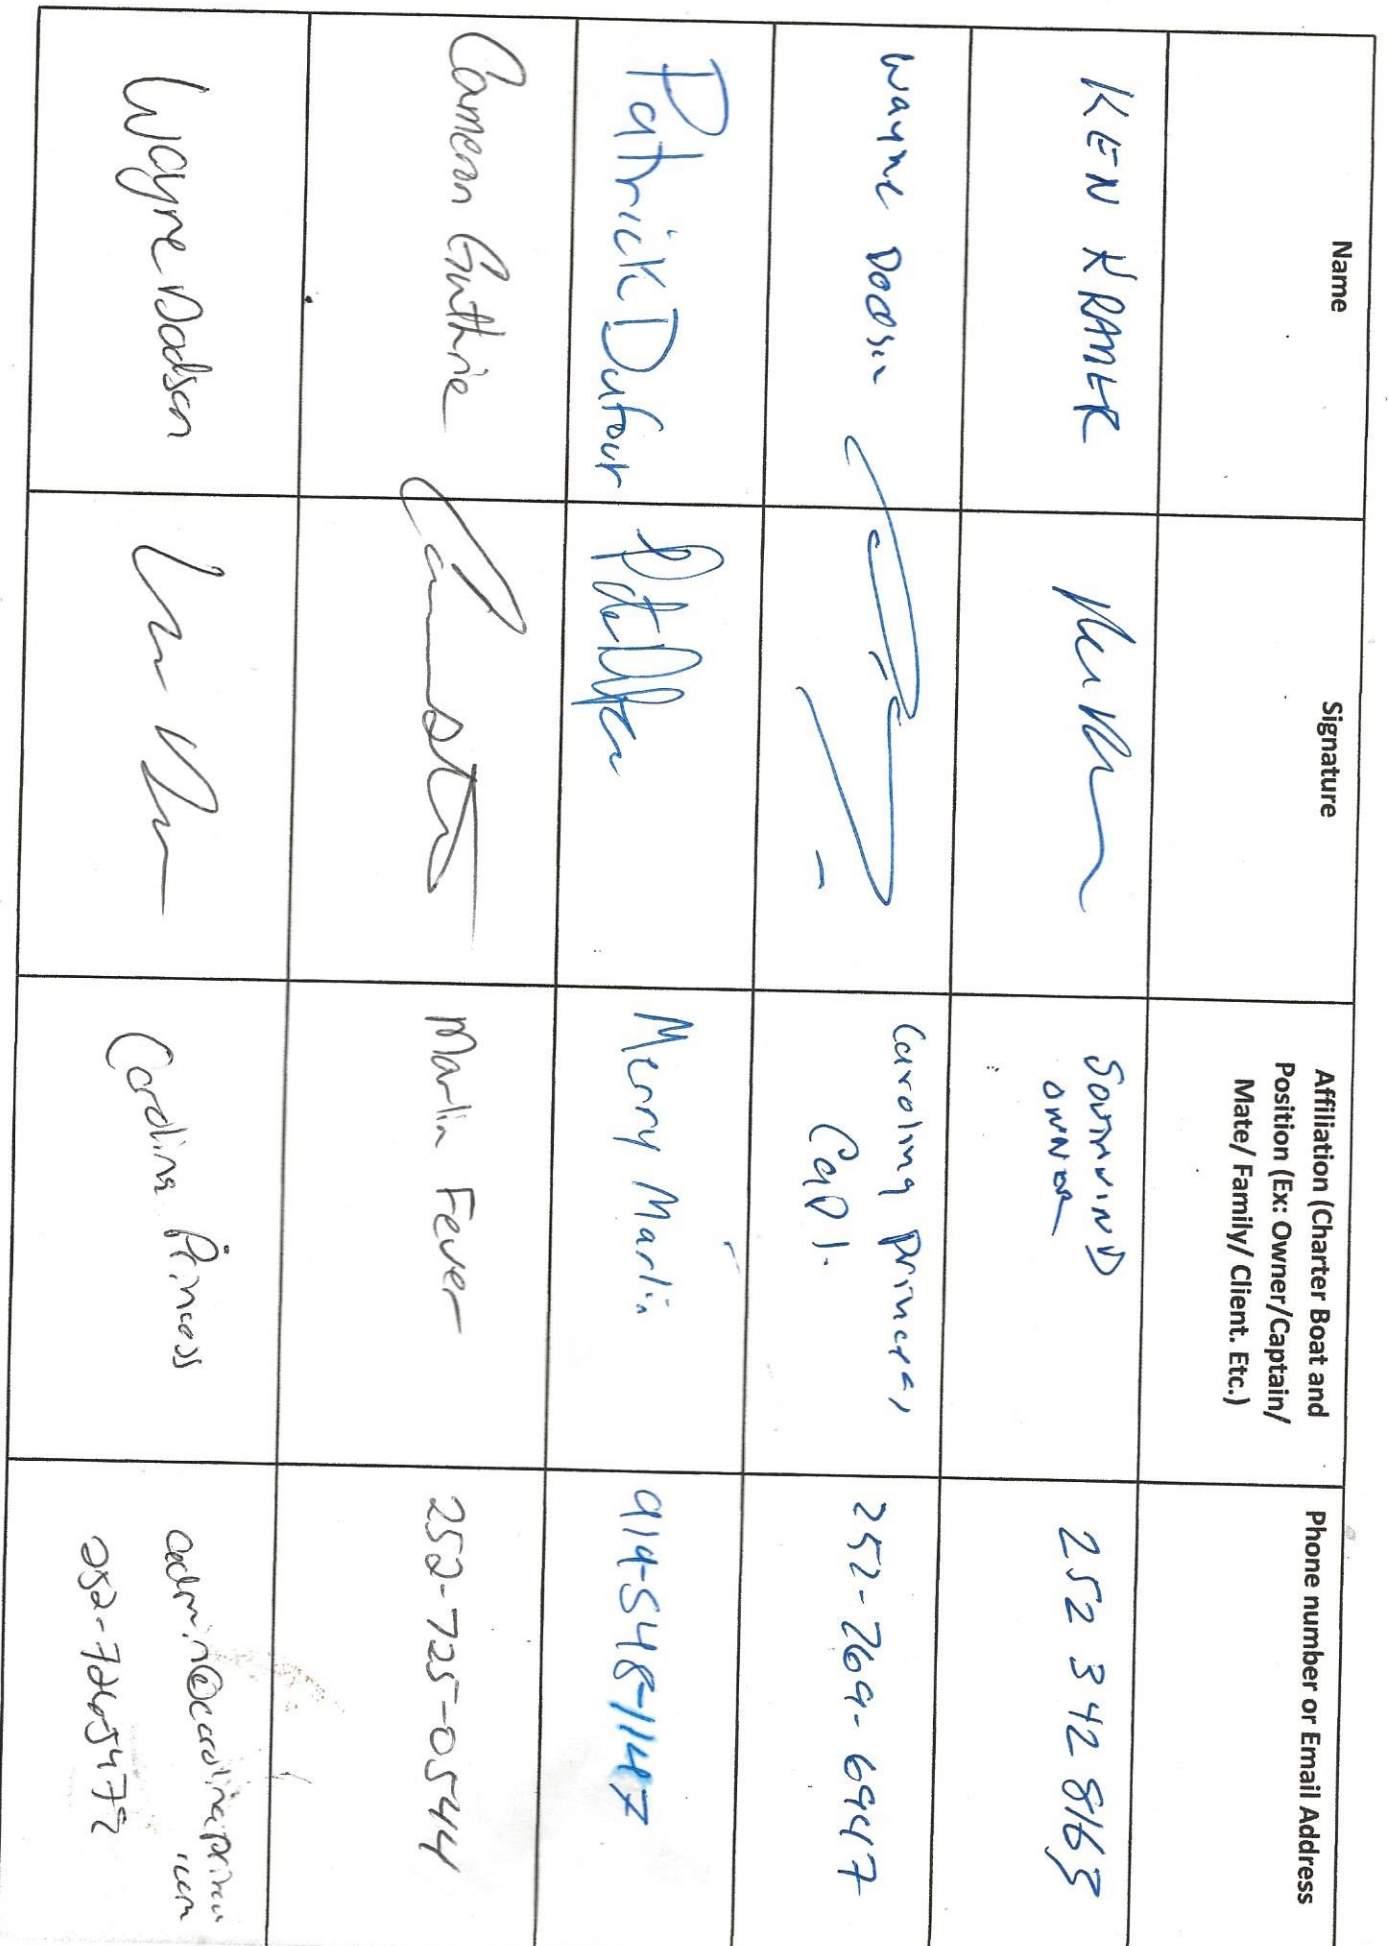 Name
Signature
Affiliation (Charter Boat and
Position (Ex: Owner/Captain/
Mate/ Family/ Client. Etc.)
Phone number or Email Address
KEN KRAMER
SOUTHWIND
OWNER
252 342 8163
Wayne Dodson
Carolina Princess
Capt.
252-269-6947
Patrick Dufour
Merry Marlin
919-548-1147
Cameron Guthrie
Marlin Fever
252-725-0544
Wayne Dodson
Carolina Princess
252-726-5479